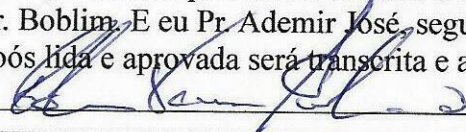 r. Boblim. E eu Pr. Ademir José, segu
pós lida e aprovada será transcrita e a